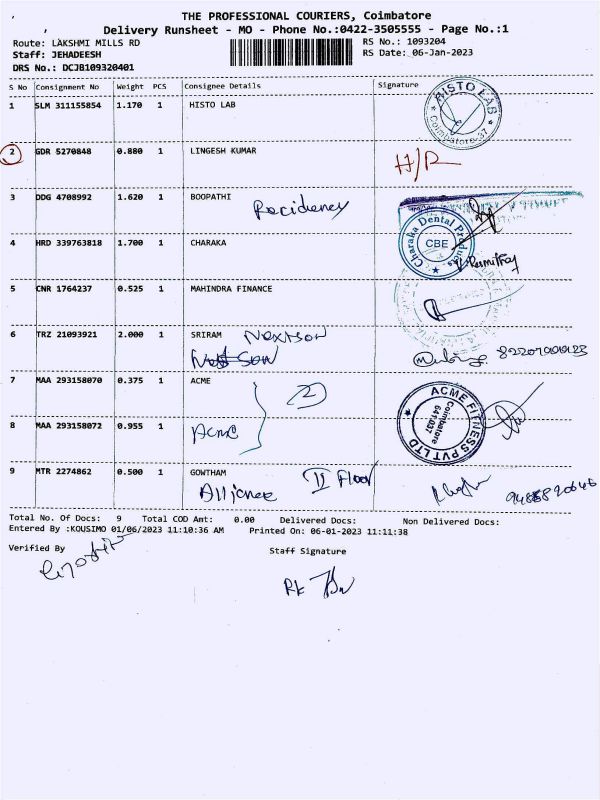 THE PROFESSIONAL COURIERS, Coimbatore
Delivery Runsheet - MO - Phone No.:0422-3505555 - Page No.:1
Route: LAKSHMI MILLS RD
RS No.: 1093204
Staff: JEHADEESH
RS Date: 06-Jan-2023
DRS No.: DCJB109320401
S No Consignment No Weight PCS Consignee Details Signature
1 SLM 311155854 1.170 1 HISTO LAB
HISTO LAB
Coimbatore-37
2 GDR 5270848 0.880 1 LINGESH KUMAR
H/R
3 DDG 4708992 1.620 1 BOOPATHI
Recidiency
4 HRD 339763818 1.700 1 CHARAKA
Charaka Dental Products
CBE
5 CNR 1764237 0.525 1 MAHINDRA FINANCE
6 TRZ 21093921 2.000 1 SRIRAM Nextson
7 MAA 293158070 0.375 1 ACME
2
ACME FITNESS PVT LTD
Coimbatore
641037
8 MAA 293158072 0.955 1
Acme
9 MTR 2274862 0.500 1 GOWTHAM
II Floor
Alliance
Total No. Of Docs: 9 Total COD Amt: 0.00 Delivered Docs: Non Delivered Docs:
Entered By :KOUSIMO 01/06/2023 11:10:36 AM Printed On: 06-01-2023 11:11:38
Verified By
Staff Signature